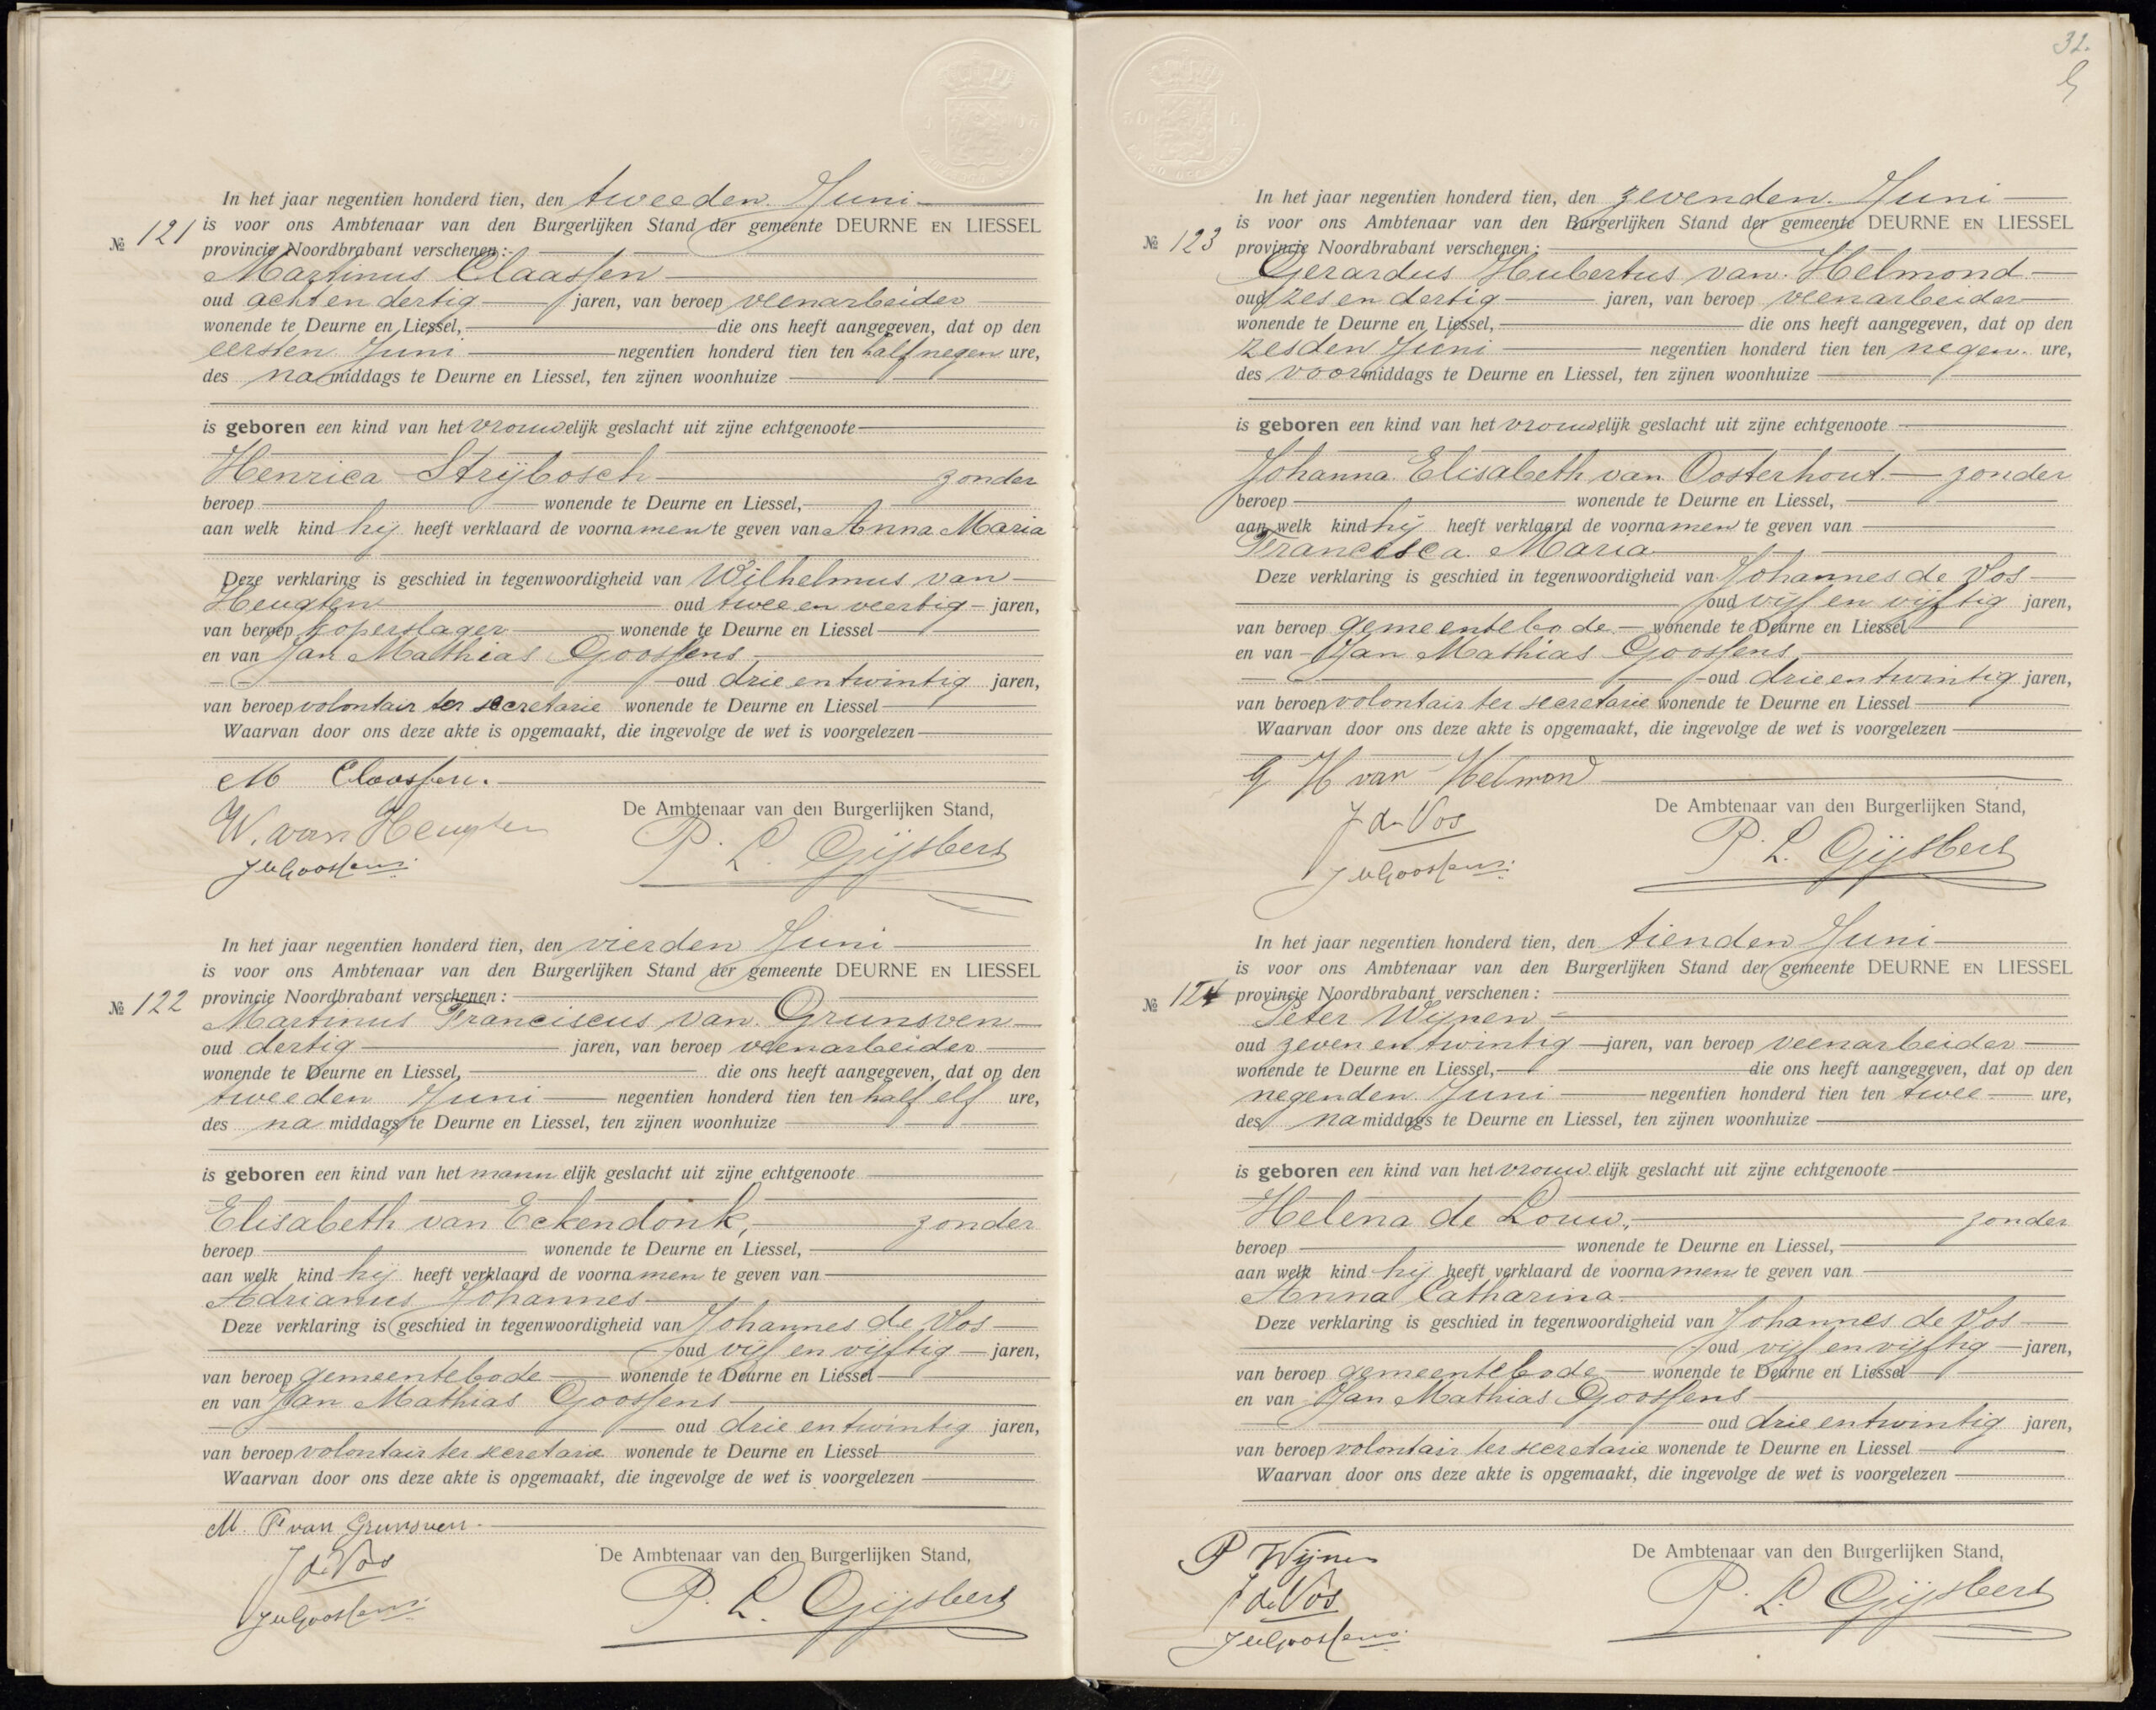 In het jaar negentien honderd tien, den tweeden Juni
is voor ons Ambtenaar van den Burgerlijken Stand der gemeente DEURNE EN LIESSEL
№ 121 provincie Noordbrabant verschenen:
Martinus Claassen
oud acht en dertig jaren, van beroep veenarbeider
wonende te Deurne en Liessel, die ons heeft aangegeven, dat op den
eersten Juni negentien honderd tien ten half negen ure,
des namiddags te Deurne en Liessel, ten zijnen woonhuize
is geboren een kind van het vrouwelijk geslacht uit zijne echtgenoote
Henrica Strijbosch zonder
beroep wonende te Deurne en Liessel,
aan welk kind hij heeft verklaard de voornamen te geven van Anna Maria
Deze verklaring is geschied in tegenwoordigheid van Wilhelmus van
Heugten oud twee en veertig jaren,
van beroep koperslager wonende te Deurne en Liessel
en van Jan Mathias Goossens
oud drie en twintig jaren,
van beroep volontair ter secretarie wonende te Deurne en Liessel
Waarvan door ons deze akte is opgemaakt, die ingevolge de wet is voorgelezen
M Claassen.
De Ambtenaar van den Burgerlijken Stand,
W. van Heugten
P. L. Gijsbers
JMGoossens
In het jaar negentien honderd tien, den vierden Juni
is voor ons Ambtenaar van den Burgerlijken Stand der gemeente DEURNE EN LIESSEL
№ 122 provincie Noordbrabant verschenen:
Martinus Franciscus van Grunsven
oud dertig jaren, van beroep veenarbeider
wonende te Deurne en Liessel, die ons heeft aangegeven, dat op den
tweeden Juni negentien honderd tien ten half elf ure,
des na middags te Deurne en Liessel, ten zijnen woonhuize
is geboren een kind van het mannelijk geslacht uit zijne echtgenoote
Elisabeth van Eckendonk, zonder
beroep wonende te Deurne en Liessel,
aan welk kind hij heeft verklaard de voornamen te geven van
Adrianus Johannes
Deze verklaring is geschied in tegenwoordigheid van Johannes de Vos
oud vijf en vijftig jaren,
van beroep gemeentebode wonende te Deurne en Liessel
en van Jan Mathias Goossens
oud drie en twintig jaren,
van beroep volontair ter secretarie wonende te Deurne en Liessel
Waarvan door ons deze akte is opgemaakt, die ingevolge de wet is voorgelezen
M. F van Grunsven.
J de Vos
De Ambtenaar van den Burgerlijken Stand,
JMGoossens
P. L. Gijsbers
32.
In het jaar negentien honderd tien, den zevenden Juni
is voor ons Ambtenaar van den Burgerlijken Stand der gemeente DEURNE EN LIESSEL
№ 123 provincie Noordbrabant verschenen:
Gerardus Hubertus van Helmond
oud zes en dertig jaren, van beroep veenarbeider
wonende te Deurne en Liessel, die ons heeft aangegeven, dat op den
zesden Juni negentien honderd tien ten negen ure,
des voormiddags te Deurne en Liessel, ten zijnen woonhuize
is geboren een kind van het vrouwelijk geslacht uit zijne echtgenoote
Johanna Elisabeth van Oosterhout zonder
beroep wonende te Deurne en Liessel,
aan welk kind hij heeft verklaard de voornamen te geven van
Francisca Maria
Deze verklaring is geschied in tegenwoordigheid van Johannes de Vos
oud vijf en vijftig jaren,
van beroep gemeentebode wonende te Deurne en Liessel
en van Jan Mathias Goossens
oud drie en twintig jaren,
van beroep volontair ter secretarie wonende te Deurne en Liessel
Waarvan door ons deze akte is opgemaakt, die ingevolge de wet is voorgelezen
G H van Helmond
De Ambtenaar van den Burgerlijken Stand,
J de Vos
P. L. Gijsbers
JMGoossens
In het jaar negentien honderd tien, den tienden Juni
is voor ons Ambtenaar van den Burgerlijken Stand der gemeente DEURNE EN LIESSEL
№ 124 provincie Noordbrabant verschenen:
Peter Wijnen
oud zeven en twintig jaren, van beroep veenarbeider
wonende te Deurne en Liessel, die ons heeft aangegeven, dat op den
negenden Juni negentien honderd tien ten twee ure,
des namiddags te Deurne en Liessel, ten zijnen woonhuize
is geboren een kind van het vrouwelijk geslacht uit zijne echtgenoote
Helena de Louw, zonder
beroep wonende te Deurne en Liessel,
aan welk kind hij heeft verklaard de voornamen te geven van
Anna Catharina
Deze verklaring is geschied in tegenwoordigheid van Johannes de Vos
oud vijf en vijftig jaren,
van beroep gemeentebode wonende te Deurne en Liessel
en van Jan Mathias Goossens
oud drie en twintig jaren,
van beroep volontair ter secretarie wonende te Deurne en Liessel
Waarvan door ons deze akte is opgemaakt, die ingevolge de wet is voorgelezen
P Wijnen
De Ambtenaar van den Burgerlijken Stand,
J de Vos
P. L. Gijsbers
JMGoossens